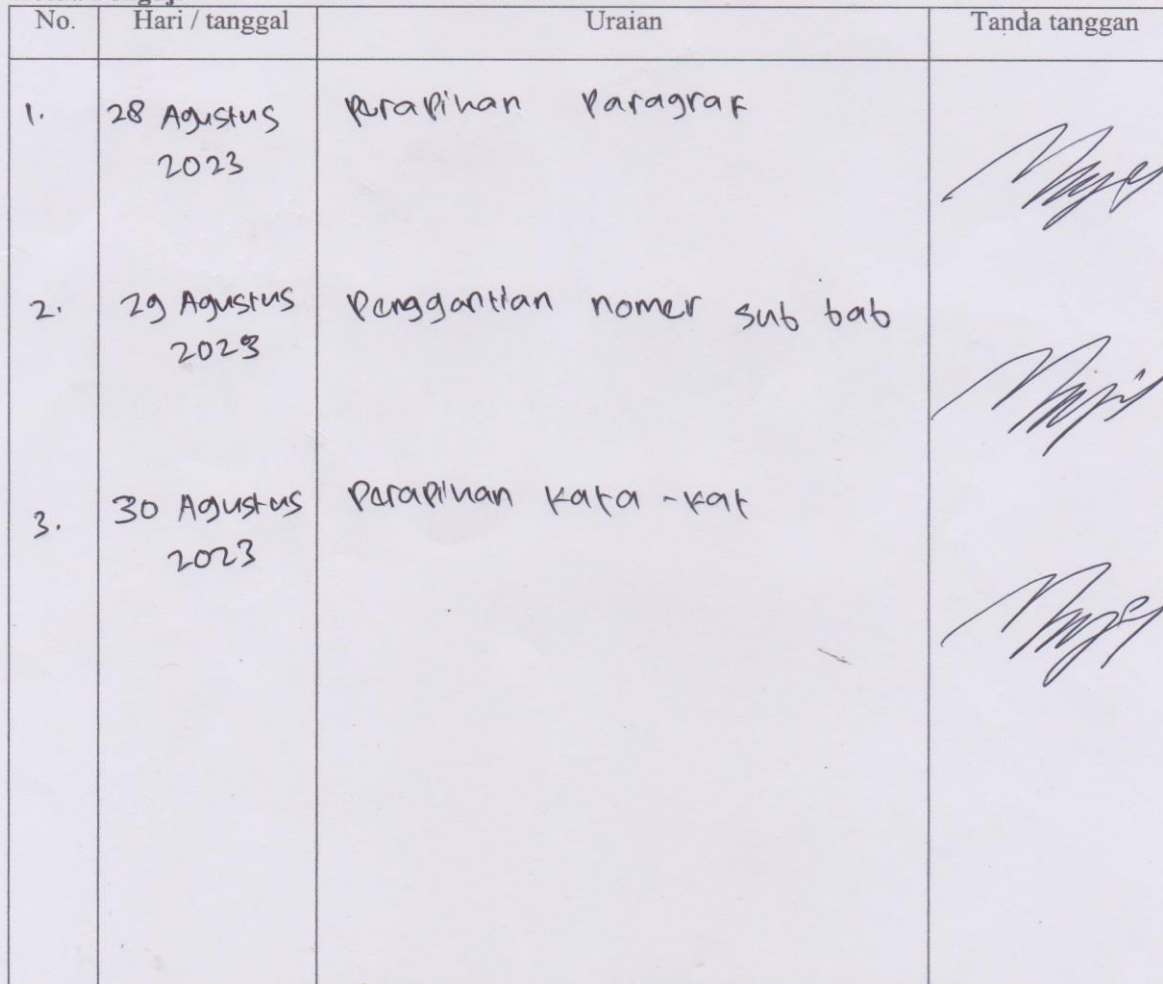 No. Hari / tanggal Uraian Tanda tanggan
1. 28 Agustus perapihan Paragraf
2023
2. 29 Agustus Penggantian nomer sub bab
2023
3. 30 Agustus Perapihan kata - kat
2023